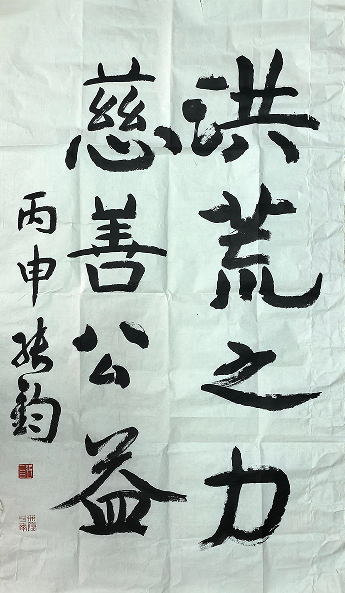 洪荒之力
慈善公益
丙申张钧